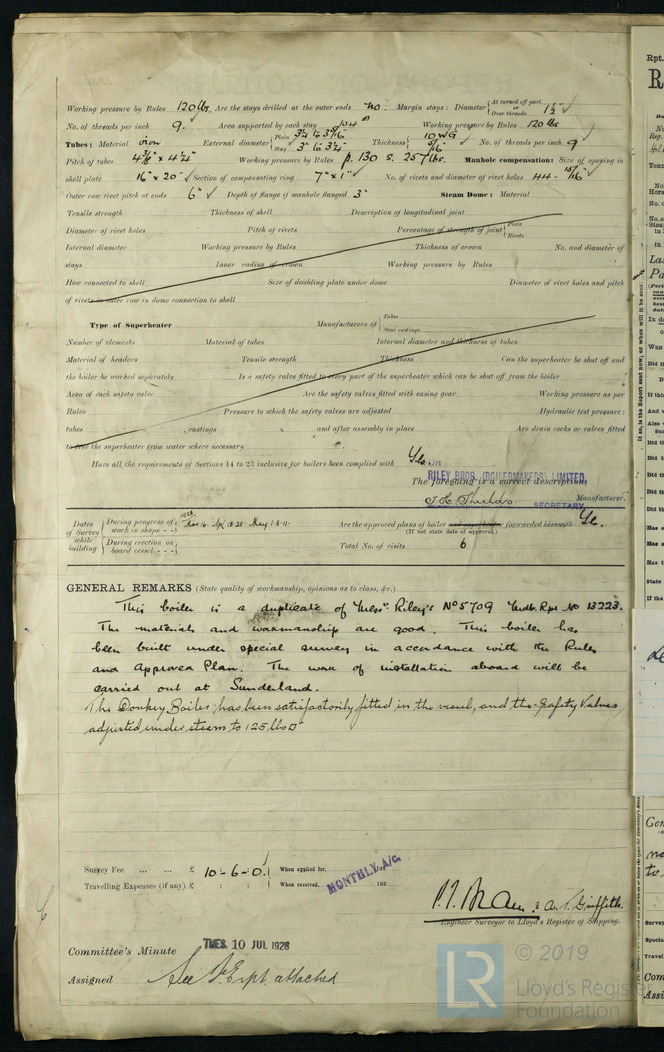 Working pressure by Rules 120 lbs. Are the stays drilled at the outer ends no. Margin stays: Diameter { At turned off part, or Over threads 1½
No. of threads per inch 9. Area supported by each stay Working pressure by Rules 120 lbs
Tubes: Material iron External diameter { Plain Stay 3" Thickness { 10 WG 5/16 No. of threads per inch 9
Pitch of tubes Working pressure by Rules p. 130 s. 257 lbs. Manhole compensation: Size of opening in
shell plate 16" x 20" Section of compensating ring 7" x 1" No. of rivets and diameter of rivet holes 44 - 15/16
Outer row rivet pitch at ends 6" Depth of flange if manhole flanged 3" Steam Dome: Material
Tensile strength Thickness of shell Description of longitudinal joint
Diameter of rivet holes Pitch of rivets Percentage of strength of joint { Plate Rivets
Internal diameter Working pressure by Rules Thickness of crown No. and diameter of
stays Inner radius of crown Working pressure by Rules
How connected to shell Size of doubling plate under dome Diameter of rivet holes and pitch
of rivets in outer row in dome connection to shell
Type of Superheater Manufacturers of { Tubes Steel castings
Number of elements Material of tubes Internal diameter and thickness of tubes
Material of headers Tensile strength Thickness Can the superheater be shut off and
the boiler be worked separately Is a safety valve fitted to every part of the superheater which can be shut off from the boiler
Area of each safety valve Are the safety valves fitted with easing gear Working pressure as per
Rules Pressure to which the safety valves are adjusted Hydraulic test pressure:
tubes castings and after assembly in place Are drain cocks or valves fitted
to free the superheater from water where necessary
Have all the requirements of Sections 14 to 23 inclusive for boilers been complied with Yes
FOR RILEY BROS. (BOILERMAKERS) LIMITED,
The foregoing is a correct description,
Manufacturer.
SECRETARY
Dates of Survey while building { During progress of work in shops - - } 1928 Mar 16. Apl 18. 25. May 1. 8. 11. Are the approved plans of boiler and superheater forwarded herewith Yes.
(If not state date of approval.)
{ During erection on board vessel - - - } Total No. of visits 6
GENERAL REMARKS (State quality of workmanship, opinions as to class, &c.)
This boiler is a duplicate of Messrs. Riley's No 5709 Mdb. Rpt No 13223.
The materials and workmanship are good. This boiler has
been built under special survey in accordance with the Rules
and Approved Plan. The work of installation aboard will be
carried out at Sunderland.
The Donkey Boiler has been satisfactorily fitted in the vessel, and the Safety Valves
adjusted under steam to 125 lbs □"
Survey Fee ... ... £ 10 - 6 - 0. When applied for,
MONTHLY A/C.
Travelling Expenses (if any) £ : : When received, 192
A. T. Griffith.
Engineer Surveyor to Lloyd's Register of Shipping.
Committee's Minute TUES. 10 JUL 1928
Assigned See F.E. rpt. attached
© 2019
LR Lloyd's Register
Foundation